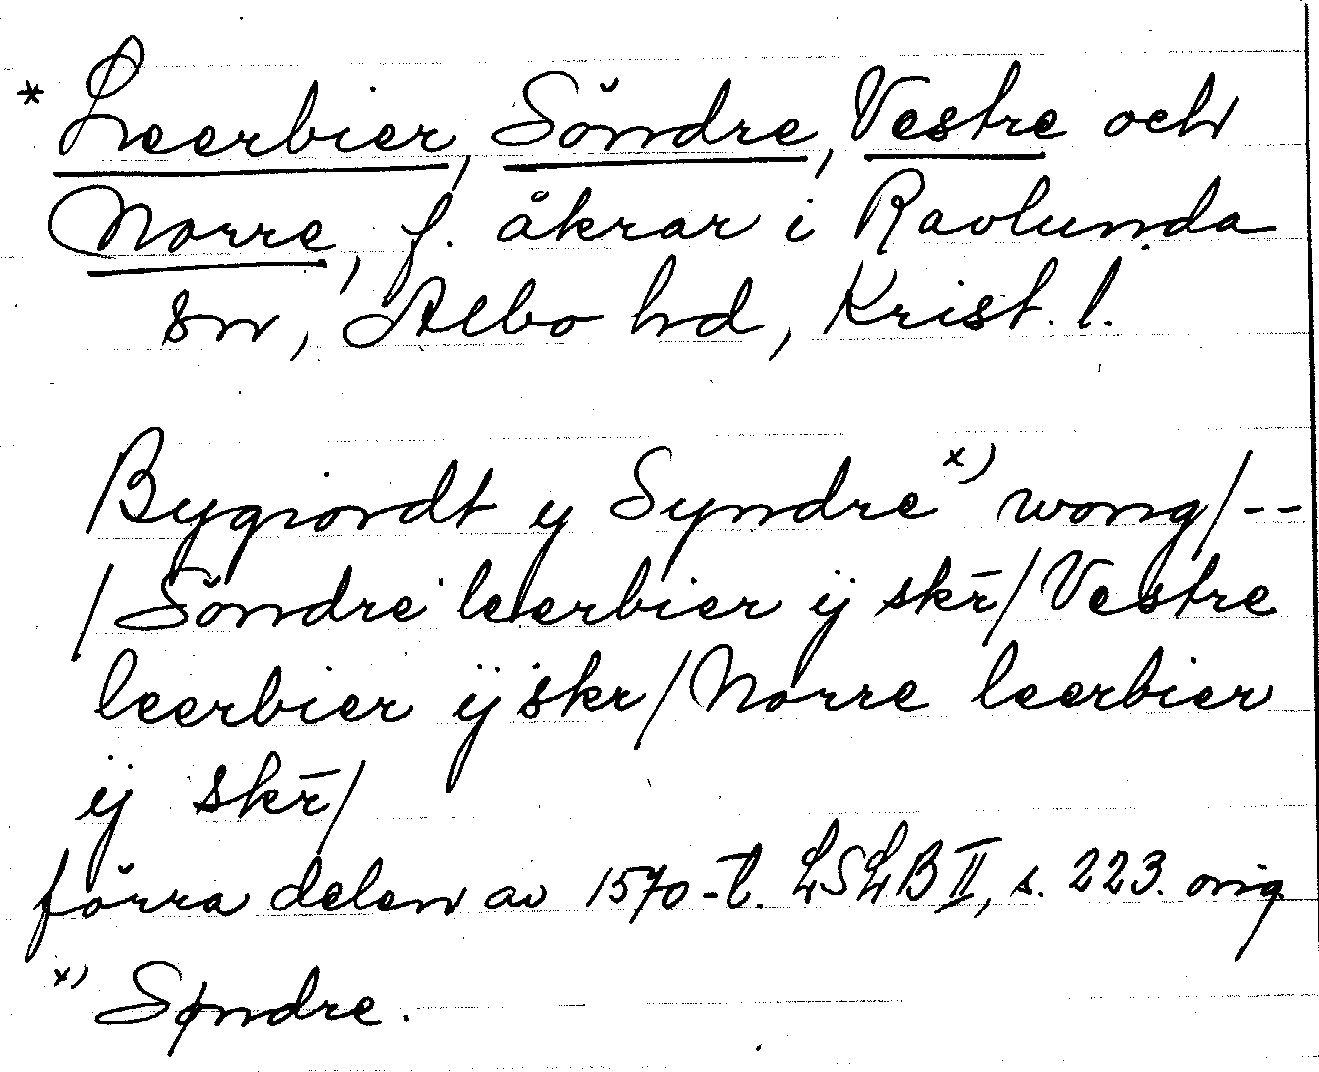 * Leerbier, Söndre, Vestre och
Norre, f. åkrar i Ravlunda
sn, Albo hd, Krist. l.
Bygiordt y Syndre x) wong/--
/Söndre leerbier ij skr̄/Vestre
leerbier ij skr/Norre leerbier
ij skr̄/
förra delen av 1570-t. LSLB II, s. 223. orig.
x) Søndre.